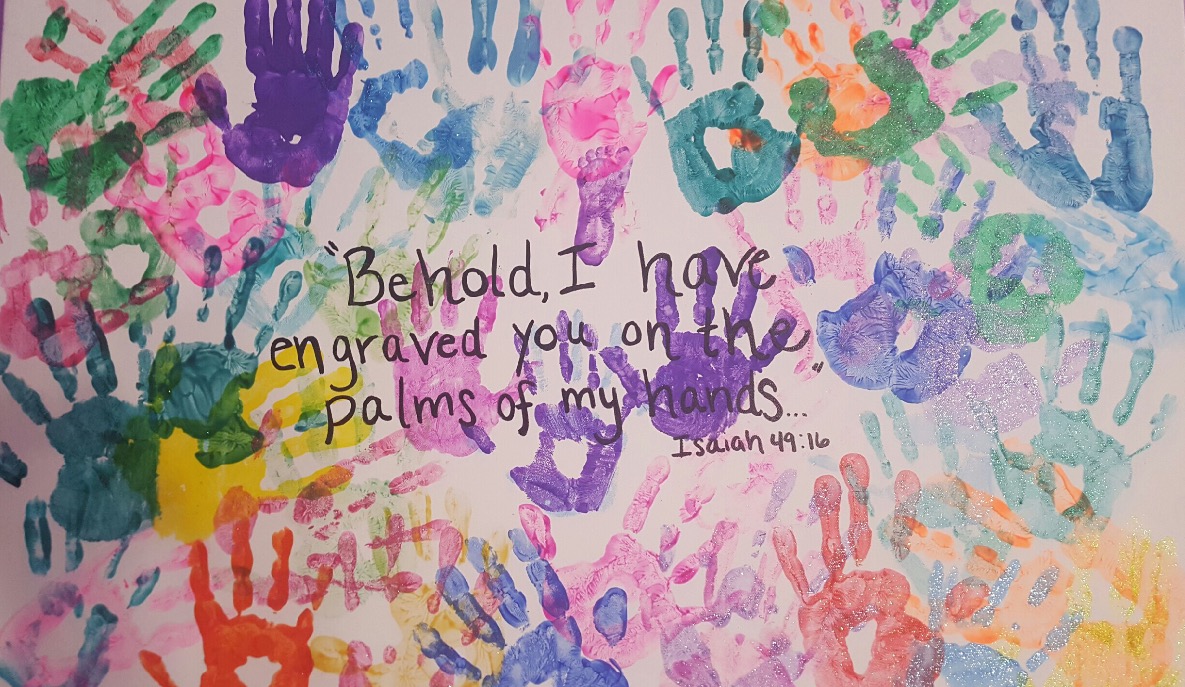 "Behold, I have
engraved you on the
palms of my hands..."
Isaiah 49:16